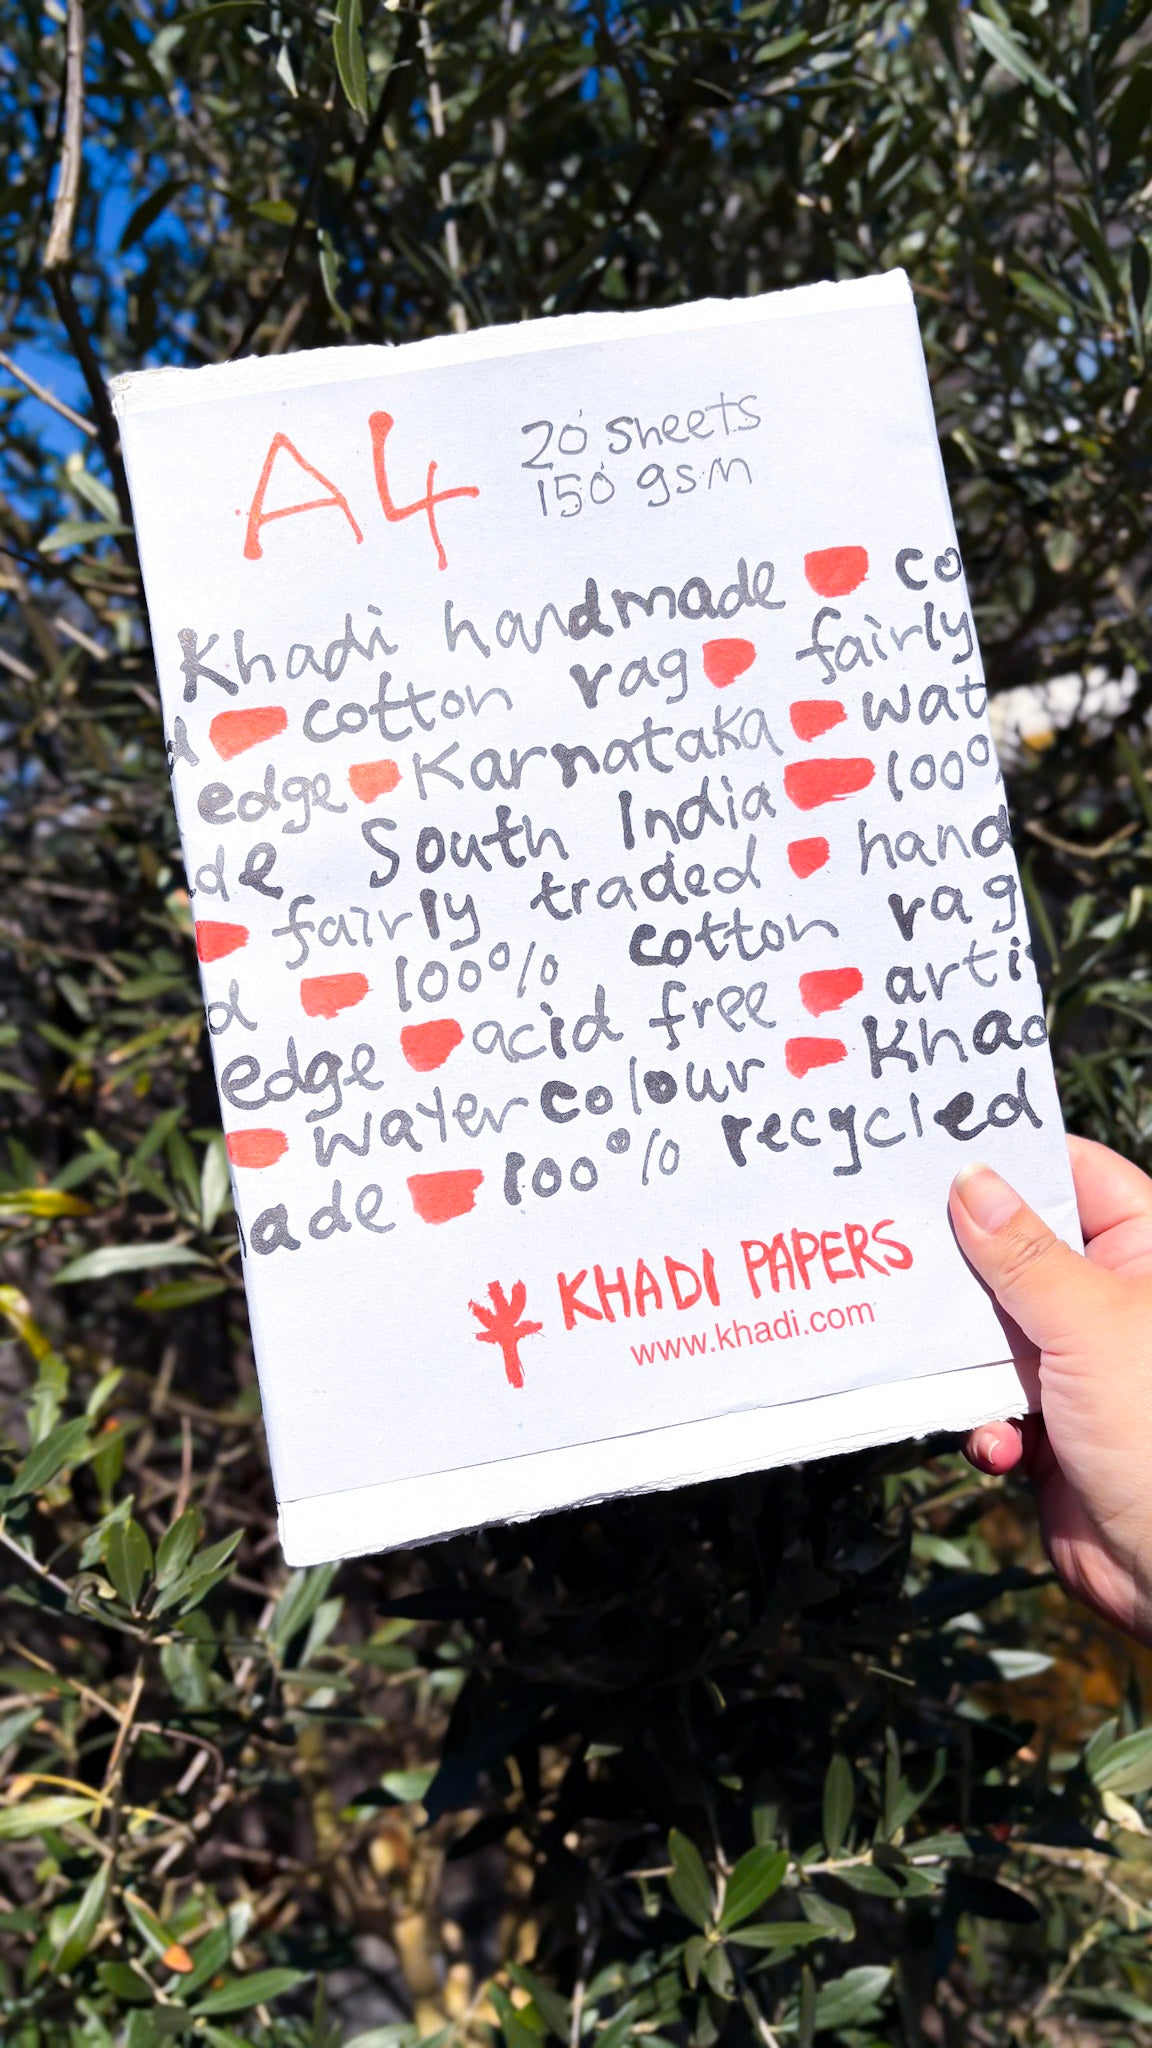 A4
20 sheets
150 gsm
Khadi handmade co
d cotton rag fairly
edge Karnataka wat
de South India 100%
fairly traded hand
d 100% cotton rag
edge acid free arti
watercolour Khad
ade 100% recycled
KHADI PAPERS
www.khadi.com